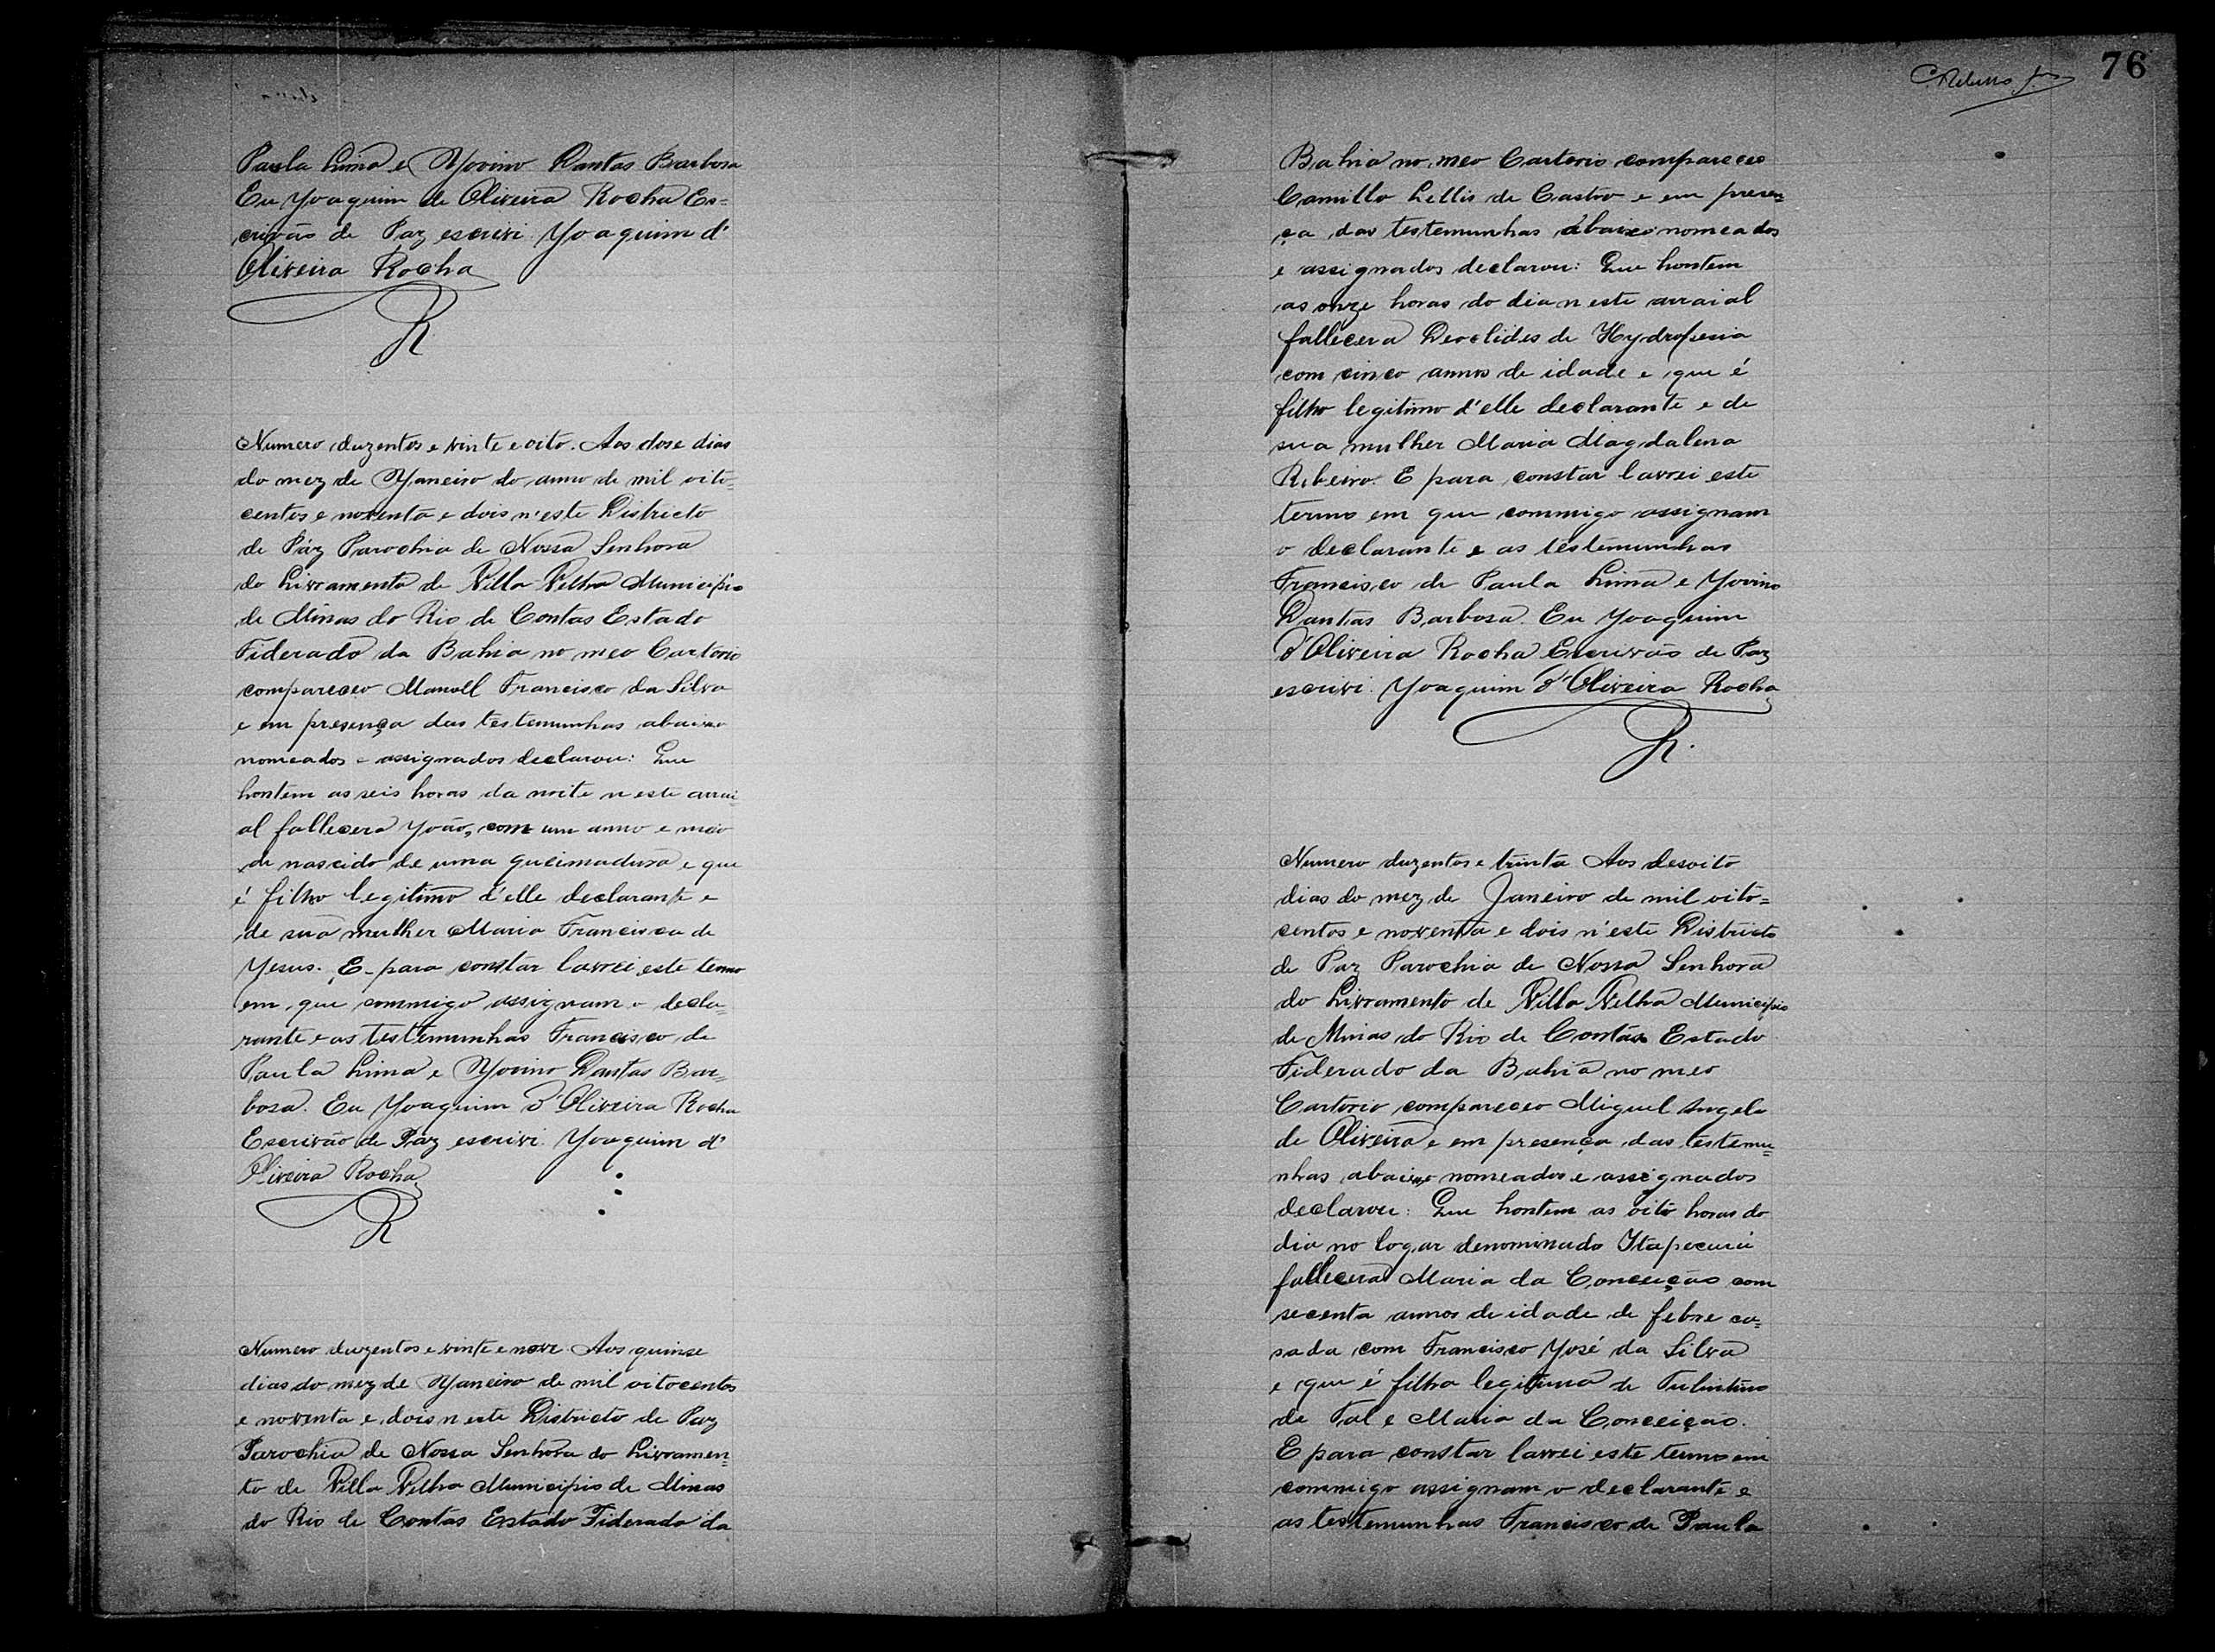 Paula Lima e Yovino Dantas Barbosa
Eu Yoaquim de Oliveira Rocha Es=
crivão de Paz escrivi Yoaquim d'
Oliveira Rocha
R
Numero duzentos e vinte e oito. Aos dose dias
do mez de Yaneiro do anno de mil oito=
centos e noventa e dois n'este Districto
de Páz Parochia de Nossa Senhora
do Livramento de Villa Velha Municipio
de Minas do Rio de Contas Estado
Fiderado da Bahia no meo Cartorio
compareceo Manoel Francisco da Silva
e em presença das testemunhas abaixo
nomeados e assignados declarou: Que
hontem as seis horas da noite n este arrai=
al fallecera Yoão, com um anno e meio
de nascido de uma queimadura e que
é filho legitimo d'elle declarante e
de sua mulher Maria Francisca de
Yesus. E para constar lavrei este termo
em que commigo assignam o decla=
rante e as testemunhas Francisco de
Paula Lima e Yovino Dantas Bar=
bosa. Eu Yoaquim d'Oliveira Rocha
Escrivão de Paz escrivi. Yoaquim d'
Oliveira Rocha
R
Numero duzentos e vinte e nove Aos quinse
dias do mez de Yaneiro de mil oitocentos
e noventa e dois n este Districto de Paz
Parochia de Nossa Senhora do Livramen=
to de Villa Velha Municipio de Minas
do Rio de Contas Estado Fiderado da
76
Bahia no meo Cartorio compareceo
Camillo Lellis de Castro e em presen=
ça das testemunhas abaixo nomeados
e assignados declarou: Que hontem
as onze horas do dia n este arraial
fallecera Deoclides de Hydropesia
com cinco annos de idade e que é
filho legitimo d'elle declarante e de
sua mulher Maria Magdalena
Ribeiro. E para constar lavrei este
termo em que commigo assignam
o declarante e as testemunhas
Francisco de Paula Lima e Yovino
Dantas Barbosa. Eu Yoaquim
d'Oliveira Rocha Escrivão de Paz
escrivi. Yoaquim d'Oliveira Rocha
R.
Numero duzentos e trinta Aos desoito
dias do mez de Janeiro de mil oito=
centos e noventa e dois n'este Districto
de Paz Parochia de Nossa Senhora
do Livramento de Villa Velha Municipio
de Minas do Rio de Contas Estado
Fiderado da Bahia no meo
Cartorio compareceo Miguel Angelo
de Oliveira e em presença das testemu=
nhas abaixo nomeados e assignados
declarou: Que hontem as oito horas do
dia no logar denominado Itapecurú
fallecera Maria da Conceição com
secenta annos de idade de febre ca=
sada com Francisco Yosé da Silva
e que é filha legitima de
de Tal e Maria da Conceição.
E para constar lavrei este termo em
commigo assignam o declarante e
as testemunhas Francisco de Paula